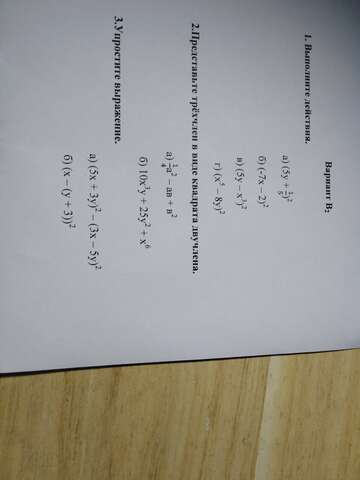 Вариант В₂
1. Выполните действия.
а) (5y + 1/5)²
б) (-7x – 2)²
в) (5y – x³)²
г) (x⁵ – 8y)²
2.Представьте трёхчлен в виде квадрата двучлена.
а) 1/4 а² – ав + в²
б) 10x³y + 25y² + x⁶
3.Упростите выражение.
а) (5x + 3y)² – (3x – 5y)²
б) (x – (y + 3))²